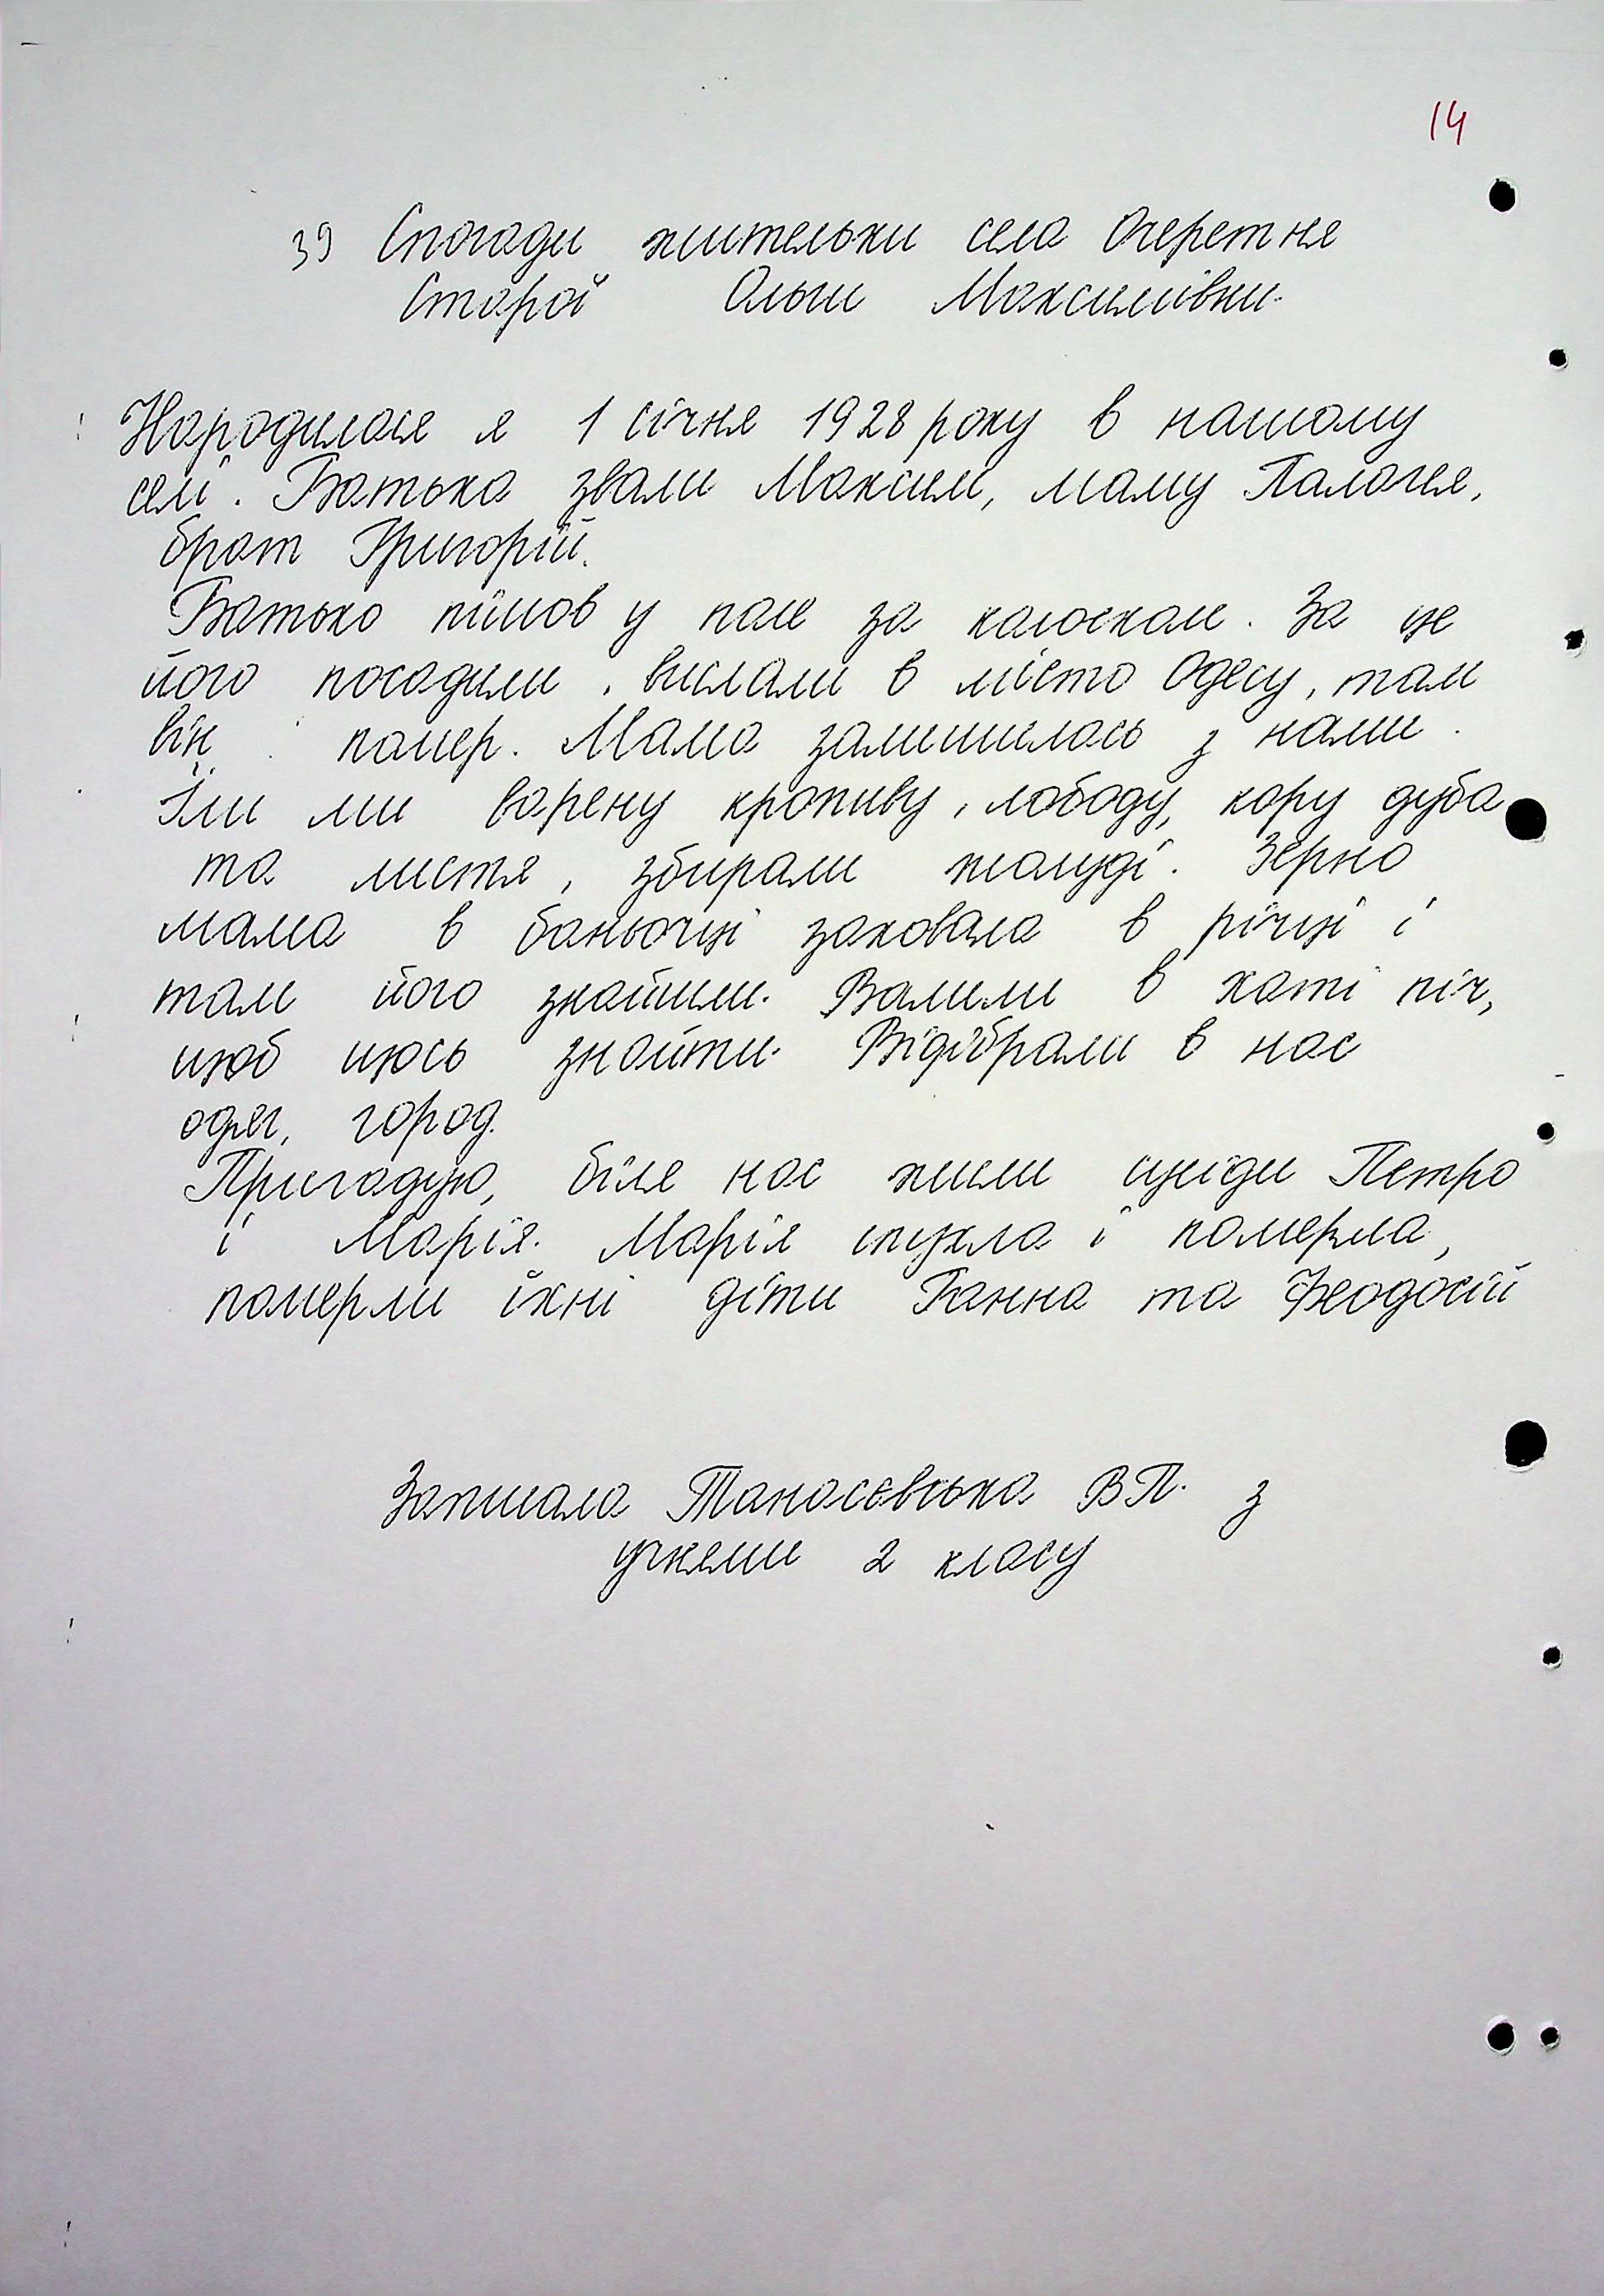 14
39 Спогади жительки села Очеретня
Старой Ольги Максимівни.
Народилася я 1 січня 1928 року в нашому
селі. Батька звали Максим, маму Палагня,
брат Григорій.
Батько пішов у поле за колоскам. За це
його посадили, вислали в місто Одесу, там
він помер. Мама залишилась з нами.
Їли ми варену кропиву, лободу, кору дуба
та листя, збирали жолуді. Зерно
мама в баньочці заховала в річці і
там його знайшли. Валили в хаті піч,
щоб щось знайти. Відібрали в нас
одяг, город.
Пригадую, біля нас жили сусіди Петро
і Марія. Марія спухла і померла,
померли їхні діти Ганна та Феодосій
Записала Танасевська В.П. з
учнями 2 класу